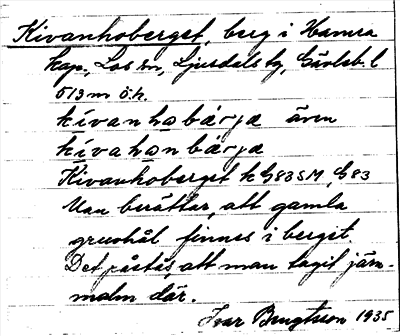 Kivanhoberget, berg i Hamra
kap., Los sn, Ljusdals tg, Gävleb. l
513 m ö.h.
kivanhobärja även
kivahonbärja
Kivanhoberget k G83SM, G83
Man berättar, att gamla
gruvhål finnes i berget.
Det påstås, att man tagit järn-
malm där.
Ivar Bengtsson 1935